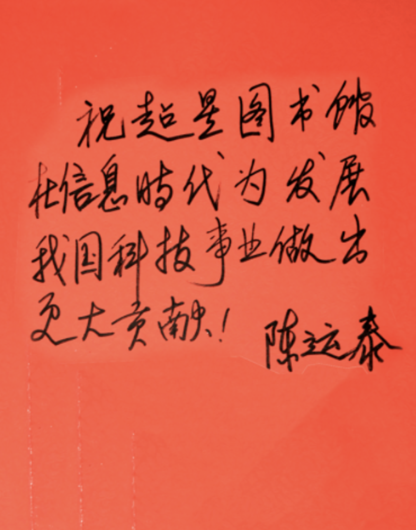 祝超星图书馆
在信息时代为发展
我国科技事业做出
更大贡献!
陈运泰